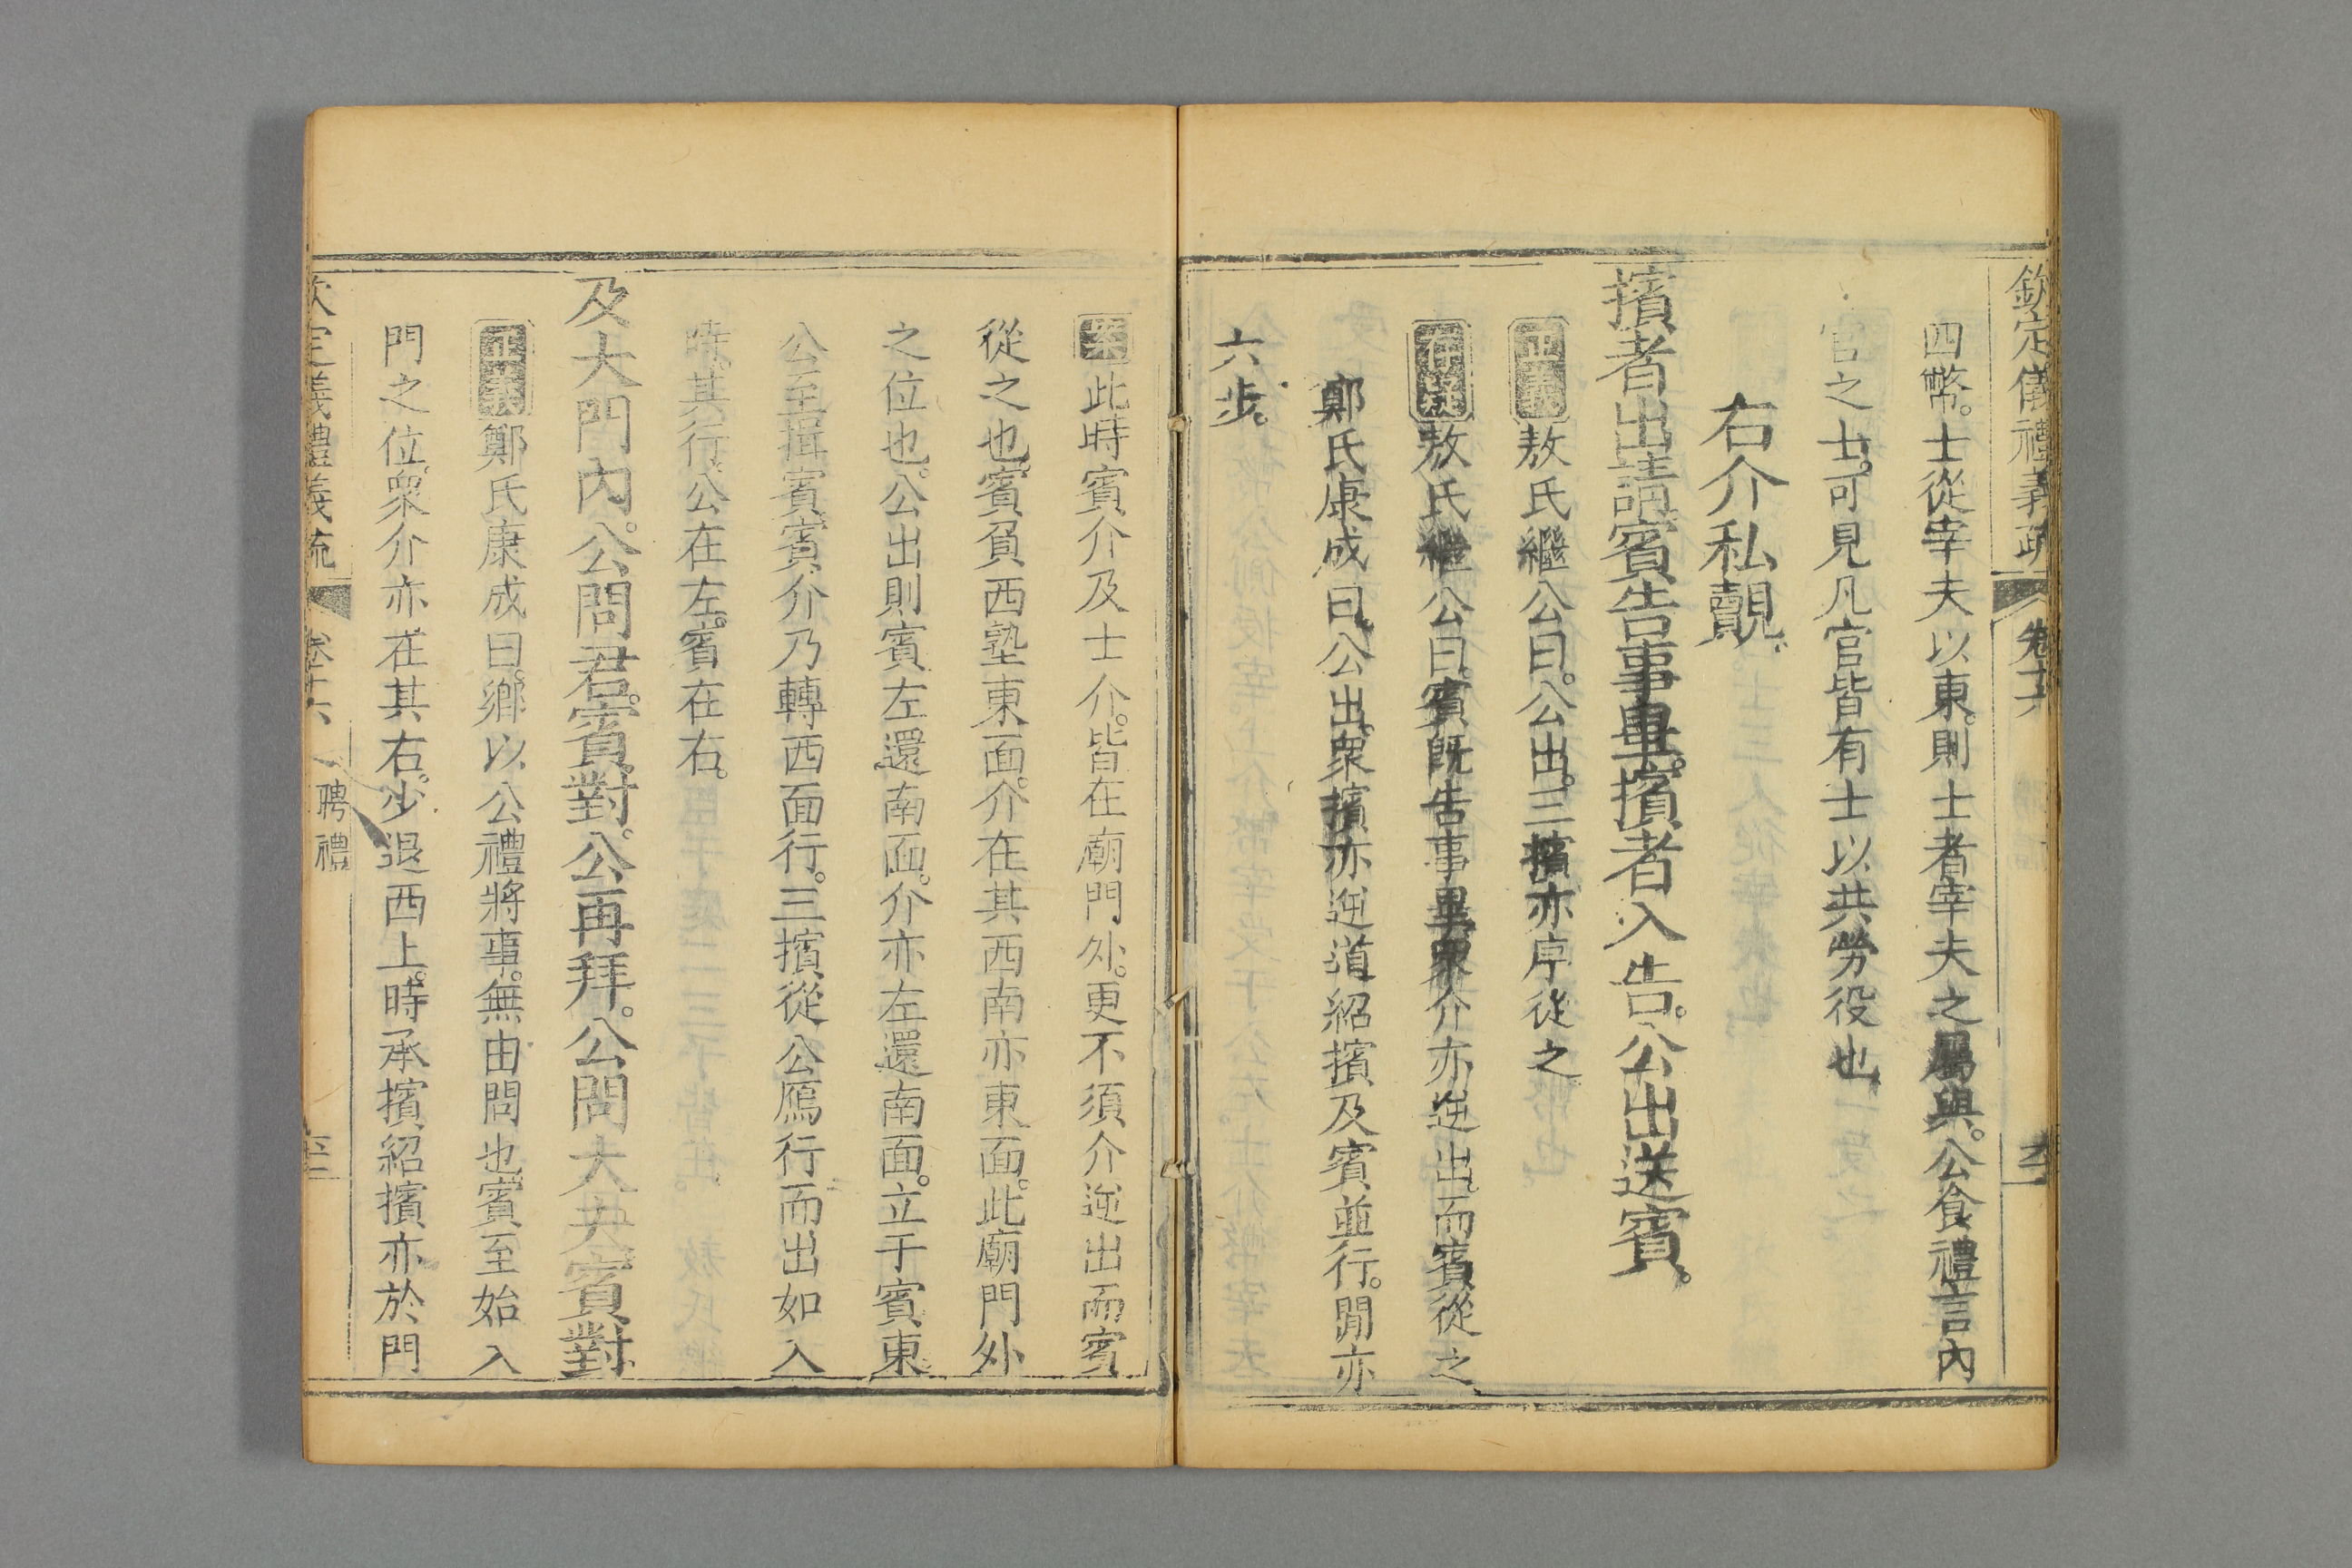 欽定儀禮義疏 卷十六
四幣。士從宰夫以東。則士者宰夫之屬與。公食禮言內
官之士。可見凡官皆有士以共勞役也
右介私覿
擯者出請。賓告事畢。擯者入告。公出送賓。
正義敖氏繼公曰。公出。三擯亦序從之
存疑敖氏繼公曰。賓旣告事畢。衆介亦逆出。而賓從之
鄭氏康成曰。公出。衆擯亦逆道。紹擯及賓並行。閒亦
六步。
案此時賓介及士介。皆在廟門外。更不須介逆出而賓
從之也。賓負西塾東面。介在其西南亦東面。此廟門外
之位也。公出則賓左還南面。介亦左還南面。立于賓東
公至揖賓。賓介乃轉西面行。三擯從公鴈行而出如入
時。其行公在左。賓在右。
及大門內。公問君。賓對。公再拜。公問大夫。賓對
正義鄭氏康成曰。鄉以公禮將事。無由問也。賓至始入
門之位。衆介亦在其右。少退西上。時承擯紹擯亦於門
欽定義禮義疏 卷十六 聘禮